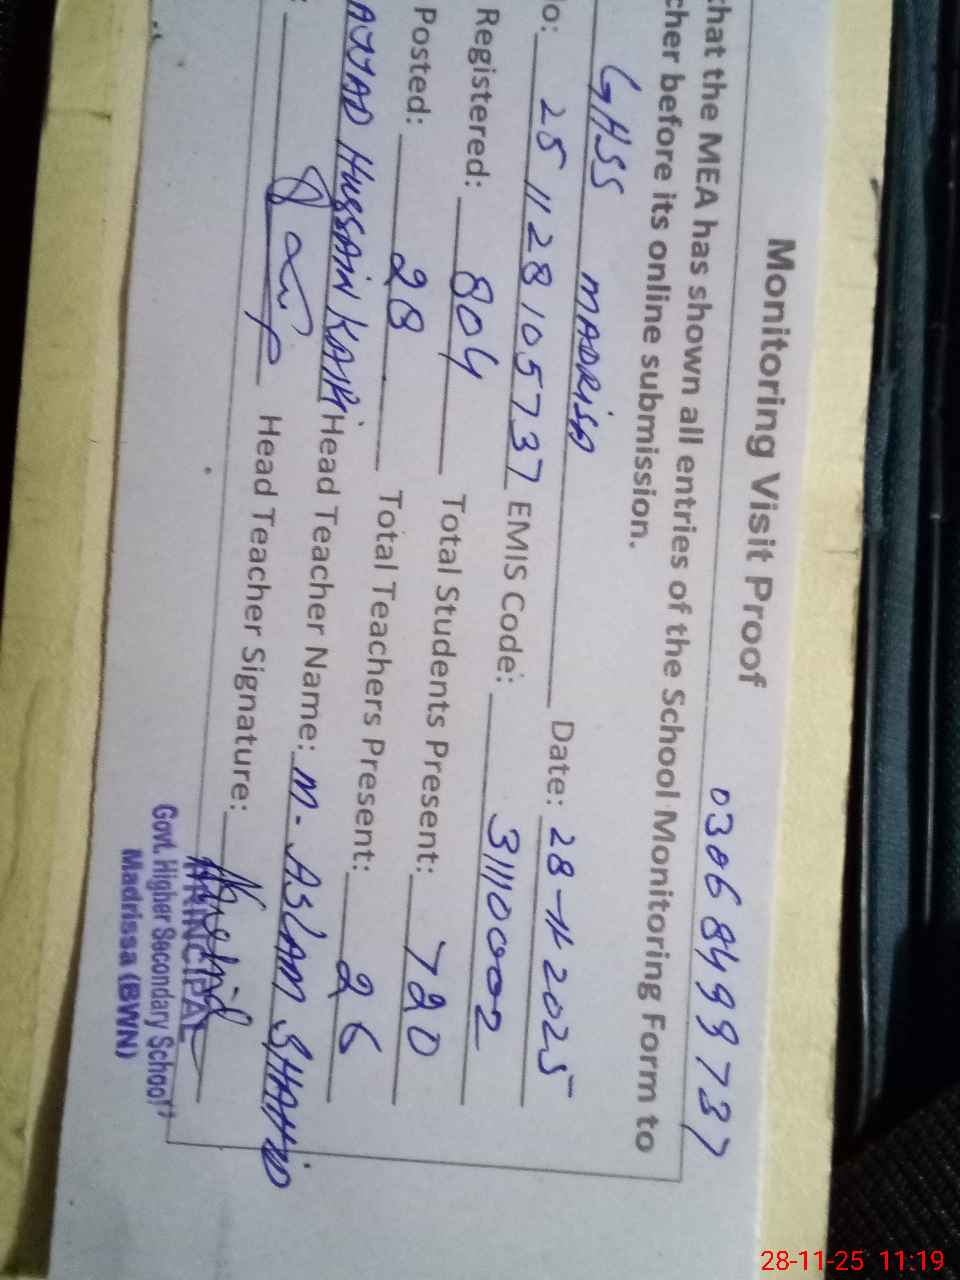 Monitoring Visit Proof
03068499737
that the MEA has shown all entries of the School Monitoring Form to
cher before its online submission.
GHSS MADRISA Date: 28-11-2025
lo: 25 11 28 105737 EMIS Code: 31110002
Registered: 804 Total Students Present: 720
Posted: 28 Total Teachers Present: 26
AJJAD HUSSAIN Head Teacher Name: M. ASLAM SHAHID
: Head Teacher Signature:
PRINCIPAL
Govt. Higher Secondary School
Madrissa (BWN)
28-11-25 11:19